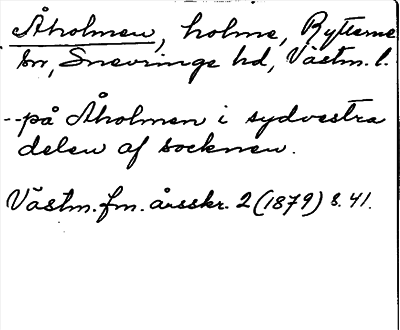 Åholmen, holme, Rytterne
sn, Snevringe hd, Västm. l.
--på Åholmen i sydvestra
delen af socknen.
Västm. fm. årsskr. 2 (1879) s. 41.